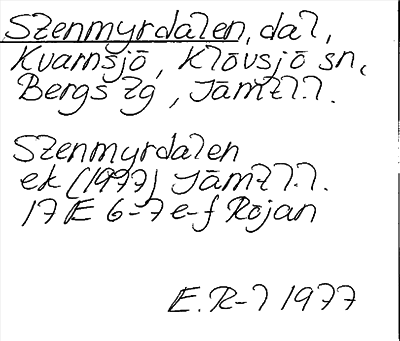 Stenmyrdalen, dal,
Kvarnsjö, Klövsjö sn,
Bergs tg, Jämtl.l.
Stenmyrdalen
ek (1977) Jämtl.l.
17 E 6-7 e-f Röjan
E.R-l 1977